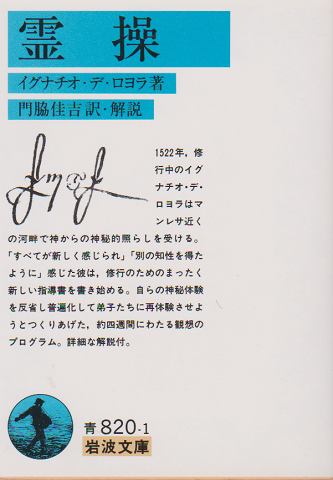 霊操
イグナチオ・デ・ロヨラ著
門脇佳吉訳・解説
1522年，修
行中のイグ
ナチオ・デ・
ロヨラはマ
ンレサ近く
の河畔で神からの神秘的照らしを受ける。
「すべてが新しく感じられ」「別の知性を得た
ように」感じた彼は，修行のためのまったく
新しい指導書を書き始める。自らの神秘体験
を反省し普遍化して弟子たちに再体験させよ
うとつくりあげた，約四週間にわたる観想の
プログラム。詳細な解説付。
青 820-1
岩波文庫